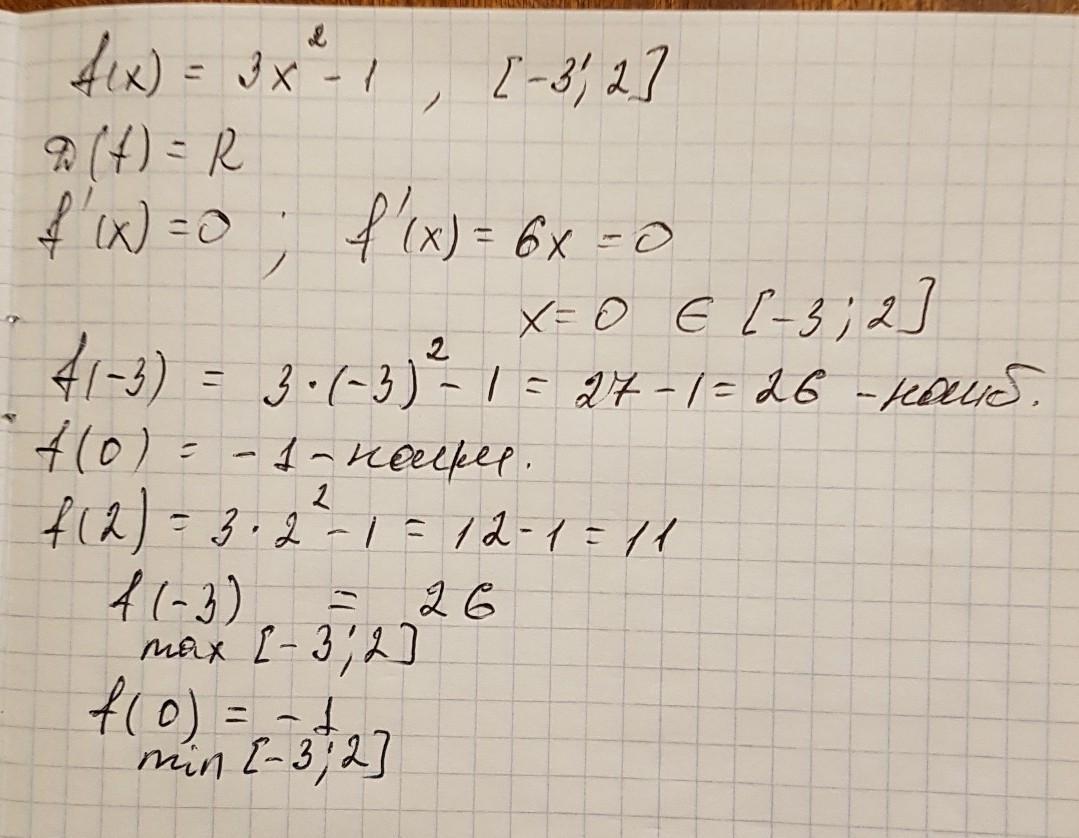 f(x) = 3x² - 1 , [-3; 2]
D(f) = R
f'(x) = 0 ; f'(x) = 6x = 0
x = 0 ∈ [-3; 2]
f(-3) = 3·(-3)² - 1 = 27 - 1 = 26 - наиб.
f(0) = -1 - наим.
f(2) = 3·2² - 1 = 12 - 1 = 11
f(-3) = 26
max [-3; 2]
f(0) = -1
min [-3; 2]